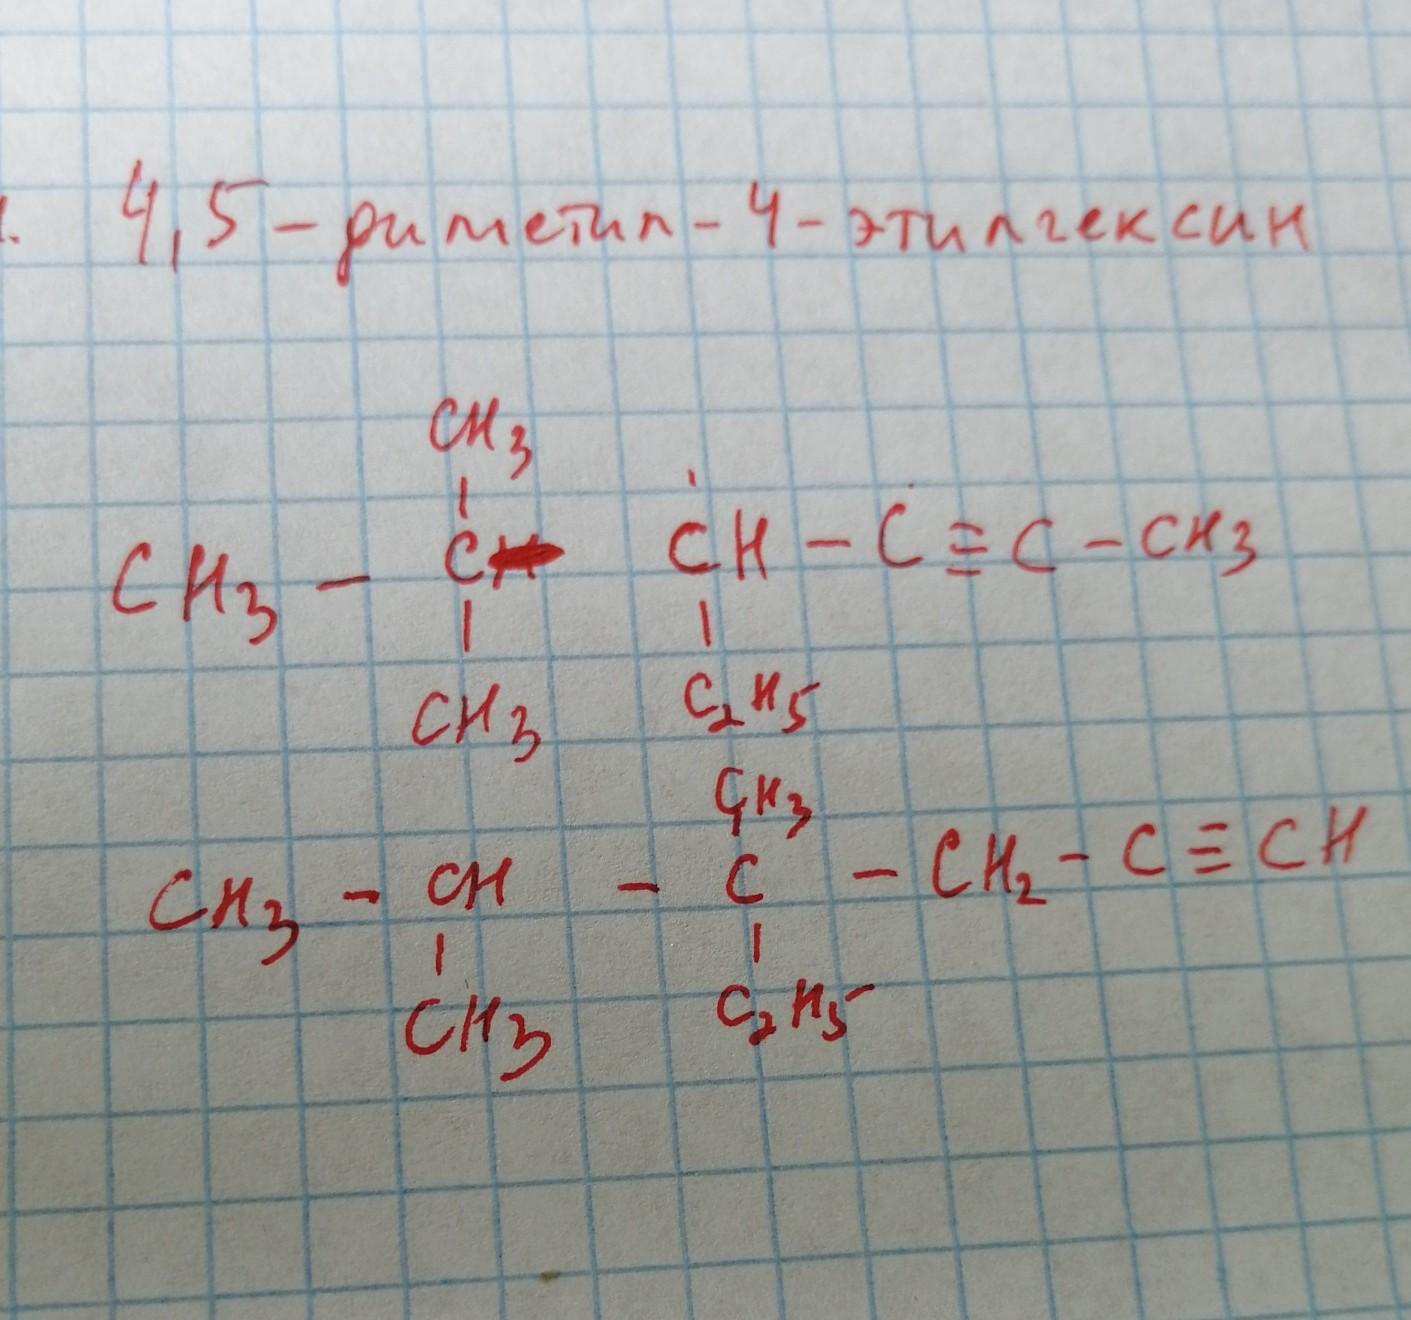 1. 4,5-диметил-4-этилгексин
CH3
CH3 - C CH - C ≡ C - CH3
CH3 C2H5
CH3
CH3 - CH - C - CH2 - C ≡ CH
CH3 C2H5